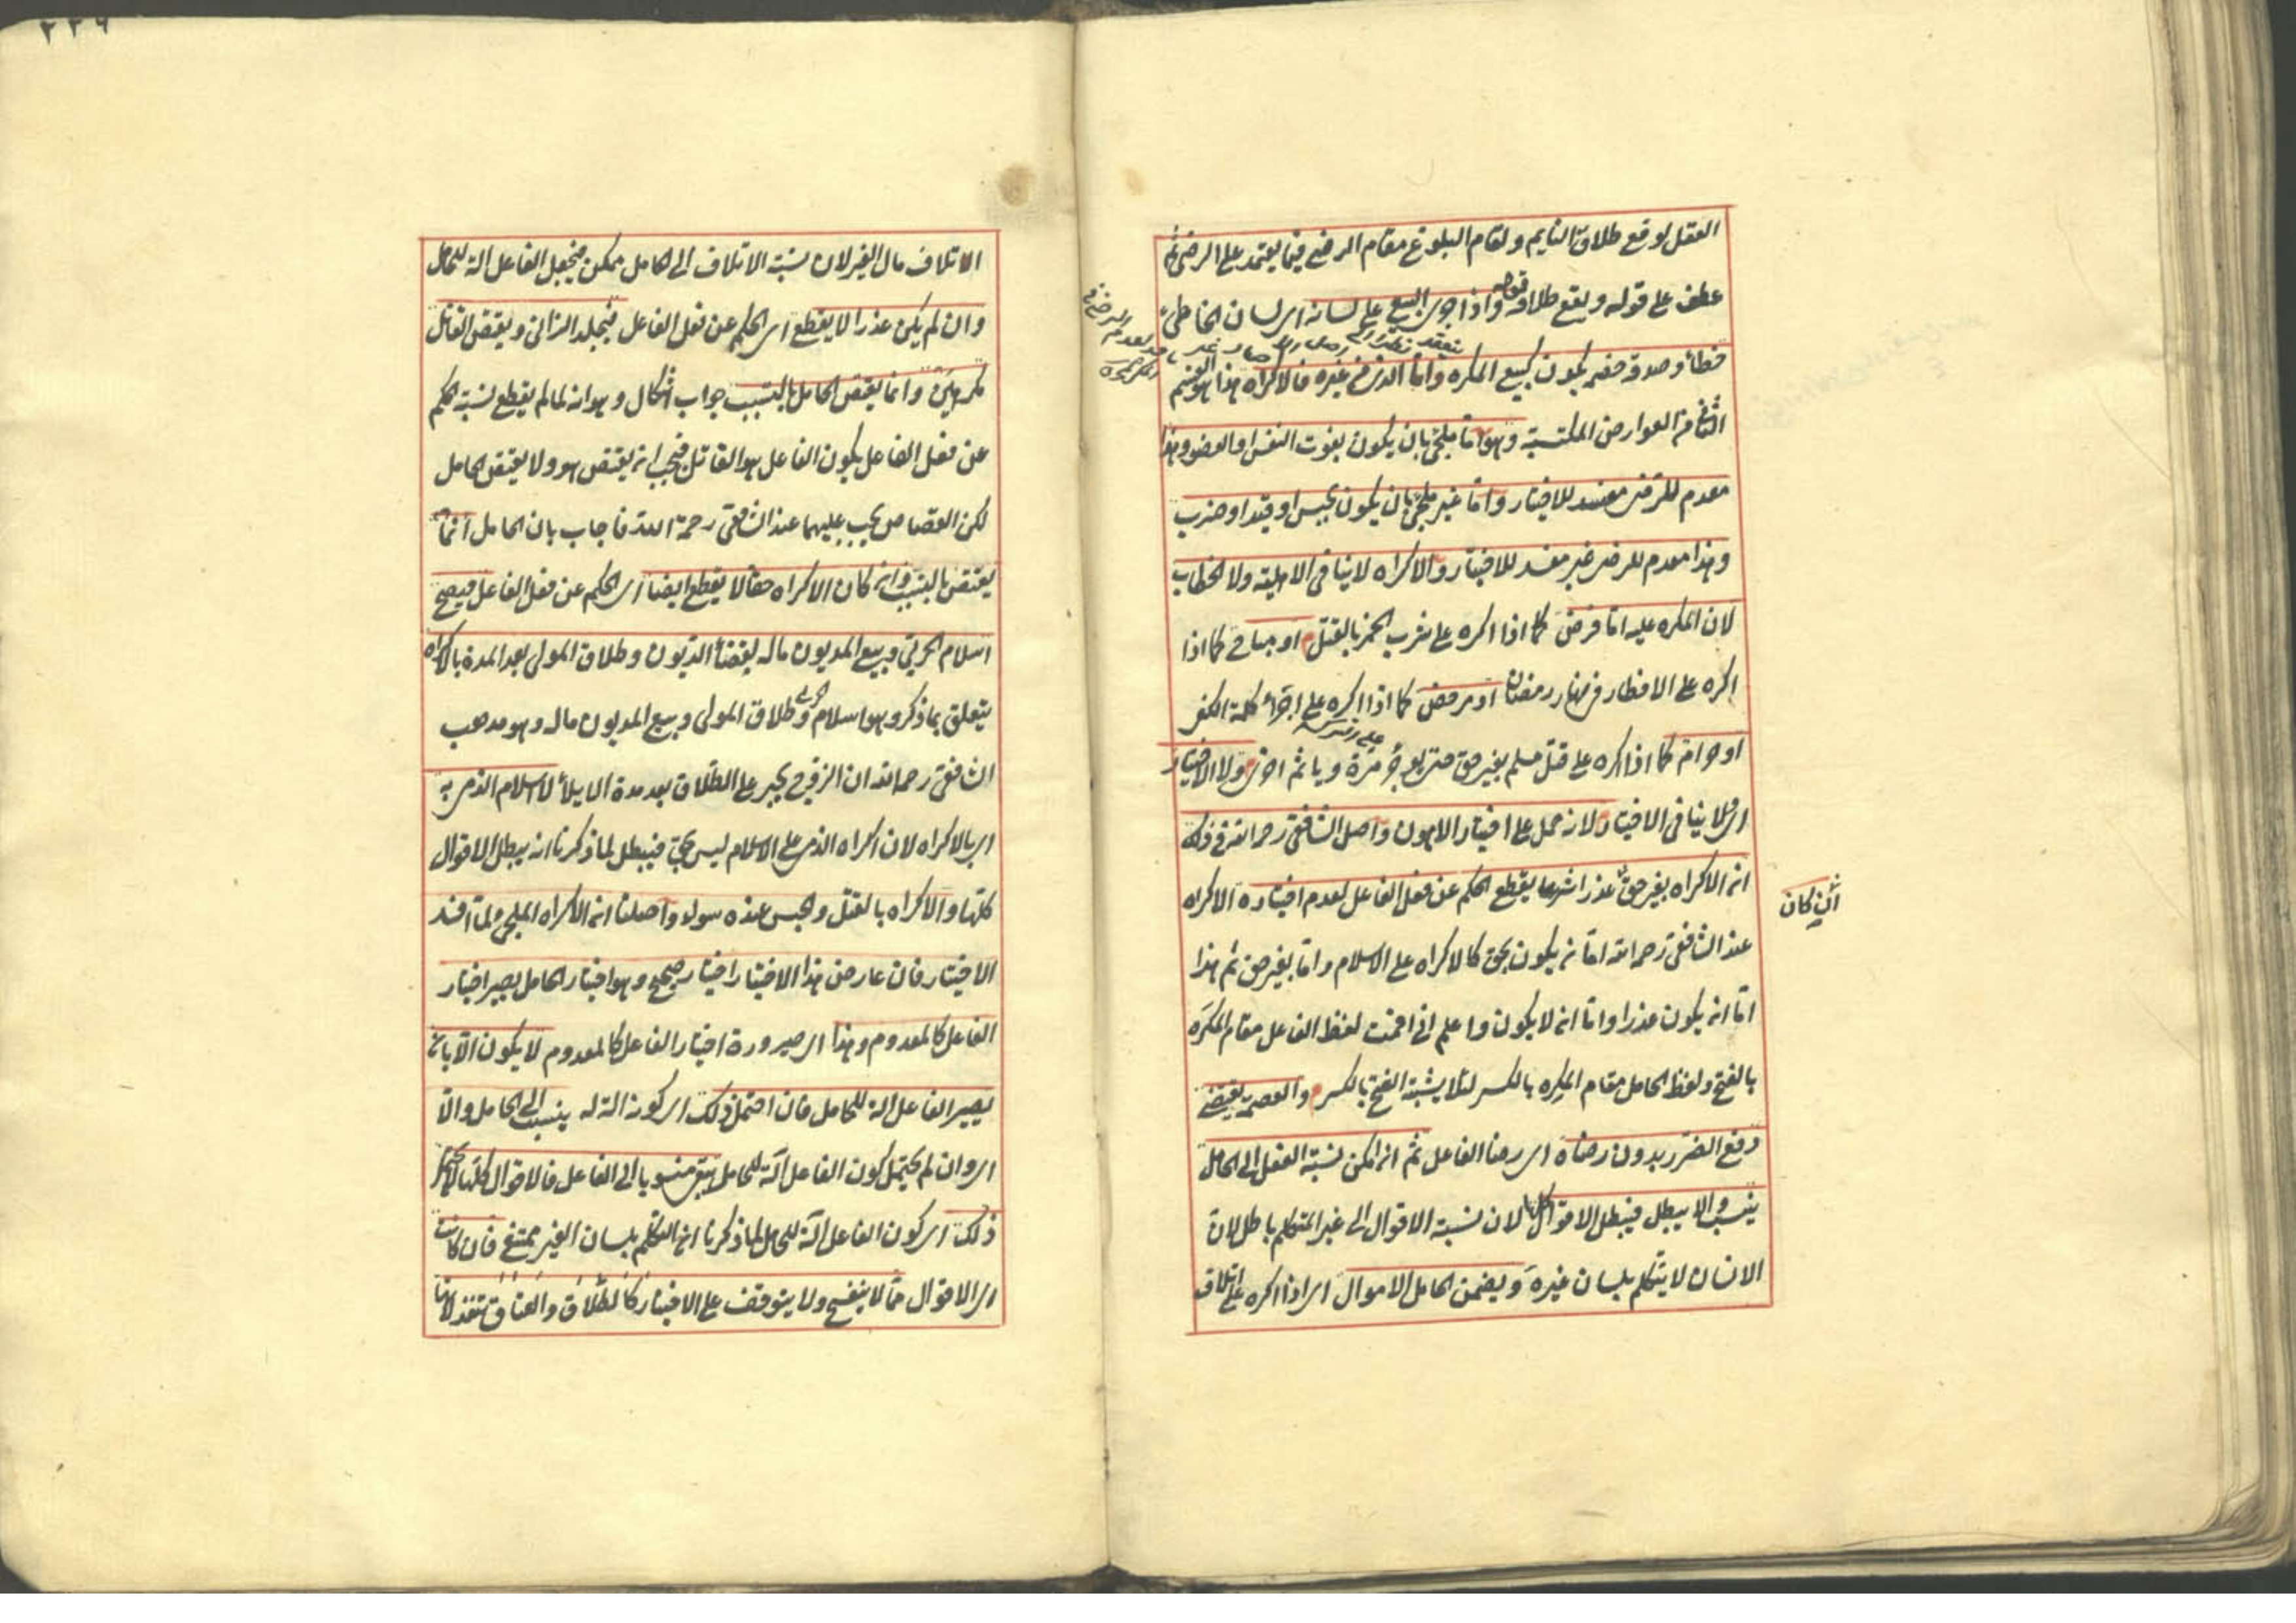 العقل لوقع طلاق النايم ولقام البلوغ مقام الرضى فيما يعتمد على الرضى
عطف على قوله ويقع طلاقه قوله واذا جرى البيع على لسانه اى لسان الخاطئ
خطأ وصدقه خصمه يكون كبيع المكره واما الذى من غيره فالاكراه هذا هو القسم
الثانى من العوارض المكتسبة وهو اما ملجئ بان يكون بفوت النفس او العضو وهذا
معدم للرضى مفسد للاختيار واما غير ملجئ بان يكون بحبس او قيد او ضرب
وهذا معدم للرضى غير مفسد للاختيار والاكراه لا ينافى الاهلية ولا الخطاب
لان المكره عليه اما فرض كما اذا اكره على شرب الخمر بالقتل او مباح كما اذا
اكره على الافطار فى نهار رمضان او مرخص كما اذا اكره على اجراء كلمة الكفر
او حرام كما اذا اكره على قتل مسلم بغير حق حتى يوجر مرة وياثم اخرى ولا الاختيار
اى ولا ينافى الاختيار لانه حمل على اختيار الاهون واصل الشافعى رحمه الله فى ذلك
ان الاكراه بغير حق عذرا شرعا يقطع الحكم عن فعل الفاعل لعدم اختياره الاكراه
ان كان
عند الشافعى رحمه الله اما ان يكون بحق كالاكراه على الاسلام واما بغير حق ثم هذا
اما ان يكون عذرا واما ان لا يكون واعلم انى اقمت لفظ الفاعل مقام المكرَه
بالفتح ولفظ الحامل مقام المكرِه بالكسر لئلا يشبه الفتح بالكسر والعصمة يقتضى
دفع الضرر بدون رضاه اى رضا الفاعل ثم ان امكن نسبة الفعل الى الحامل
ينسب والا يبطل فيبطل الاقوال كلها لان نسبة الاقوال الى غير المتكلم باطل لان
الانسان لا يتكلم بلسان غيره ويضمن الحامل الاموال اى اذا اكره على اتلاف
٢٢٦
الاتلاف مال الغير لان نسبة الاتلاف الى الحامل ممكن فيجعل الفاعل الة للحامل
وان لم يكن عذرا لا يقطع اى الحكم عن فعل الفاعل فيجلد الزانى ويقتص القاتل
مكرهين وانما يقتص الحامل بالتسبب جواب اشكال وهو انه لما لم يقطع نسبة الحكم
عن فعل الفاعل يكون الفاعل هو القاتل فيجب ان يقتص هو ولا يقتص الحامل
لكن القصاص يجب عليهما عند الشافعى رحمة الله فاجاب بان الحامل انما
يقتص بالتسبب وان كان الاكراه حقا لا يقطع ايضا اى الحكم عن فعل الفاعل فيصح
اسلام الحربى وبيع المديون ماله لقضاء الديون وطلاق المولى بعد المدة بالاكراه
يتعلق بما ذكر وهو اسلام الحربى وطلاق المولى وبيع المديون ماله وهو مذهب
الشافعى رحمه الله ان الزوج يجبر على الطلاق بعد مدة الايلاء لا اسلام الذمى به
اى بالاكراه لان اكراه الذمى على الاسلام ليس بحق فيبطل لما ذكرنا انه يبطل الاقوال
كلها والاكراه بالقتل والحبس عنده سواء واصلنا ان الاكراه الملجئ لما افسد
الاختيار فان عارض هذا الاختيار اختيار صحيح وهو اختيار الحامل يصير اختيار
الفاعل كالمعدوم وهذا اى صيرورة اختيار الفاعل كالمعدوم لا يكون الا بان
يصير الفاعل الة للحامل فان احتمل ذلك اى كونه الة له ينسب الى الحامل والا
اى وان لم يحتمل كون الفاعل آلة للحامل يبقى منسوبا الى الفاعل فالاقوال كلها لا يحتمل
ذلك اى كون الفاعل آلة للحامل لما ذكرنا ان التكلم بلسان الغير ممتنع فان كانت
اى الاقوال مما لا ينفسخ ولا يتوقف على الاختيار كالطلاق والعتاق تنفذ لانها